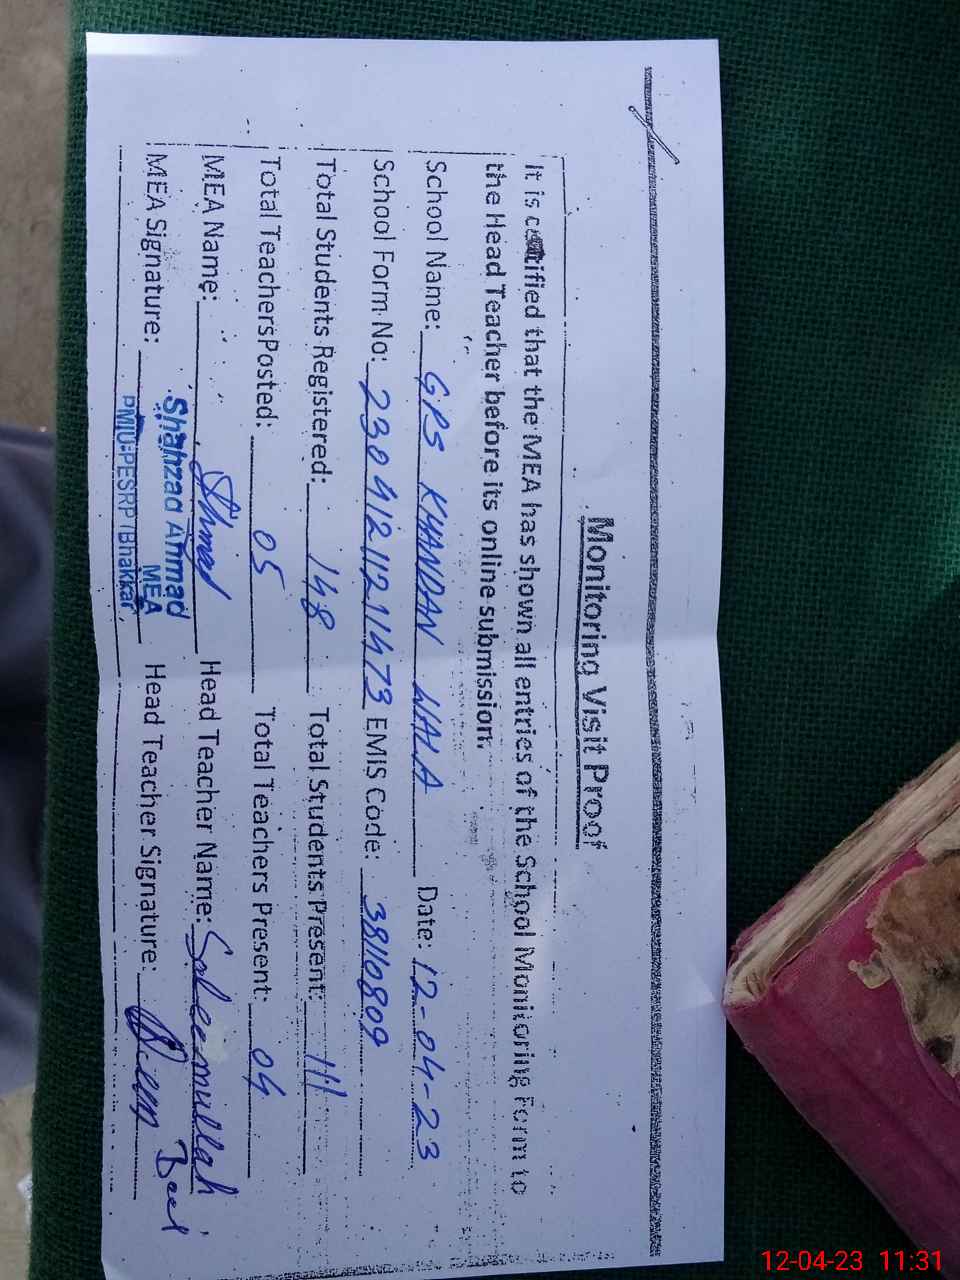 Monitoring Visit Proof
It is certified that the MEA has shown all entries of the School Monitoring Form to
the Head Teacher before its online submission.
School Name: GPS KHANDAN WALA Date: 12-04-23
School Form No: 23041211211473 EMIS Code: 38110809
Total Students Registered: 148 Total Students Present: 111
Total Teachers Posted: 05 Total Teachers Present: 04
MEA Name: Ahmad Head Teacher Name: Saleemullah
MEA Signature: Head Teacher Signature:
Shahzad Ahmad
MEA
PMIU-PESRP (Bhakkar)
12-04-23 11:31